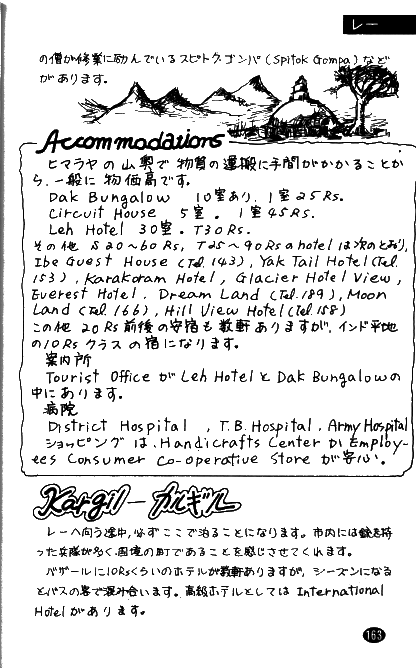 レー
の僧が修業に励んでいるスピトク・ゴンパ (Spitok Gompa) など
があります。
Accommodations
ヒマラヤの山奥で物質の運搬に手間がかかることか
ら、一般に物価高です。
Dak Bungalow 10室あり、1室25Rs.
Circuit House 5室。1室45Rs.
Leh Hotel 30室。T30Rs.
その他 S20~60Rs, T25~90Rsのhotelは次のとおり,
Ibe Guest House (Tel.143), Yak Tail Hotel (Tel.
153), Karakoram Hotel, Glacier Hotel View,
Everest Hotel. Dream Land (Tel.189), Moon
Land (Tel.166), Hill View Hotel (Tel.158)
この他20Rs前後の安宿も数軒ありますが、インド平地
の10Rsクラスの宿になります。
案内所
Tourist Office がLeh HotelとDak Bungalowの
中にあります。
病院
District Hospital , T.B. Hospital, Army Hospital
ショッピングは、Handicrafts CenterかEmploy-
ees Consumer Co-operative Store が安い。
Kargil—カルギル
レーへ向う途中,必ずここで泊ることになります。市内には銃を持
った兵隊が多く、国境の町であることを感じさせてくれます。
バザールに10Rsくらいのホテルが数軒ありますが, シーズンになる
とバスの客で混み合います。高級ホテルとしては International
Hotelがあります。
163